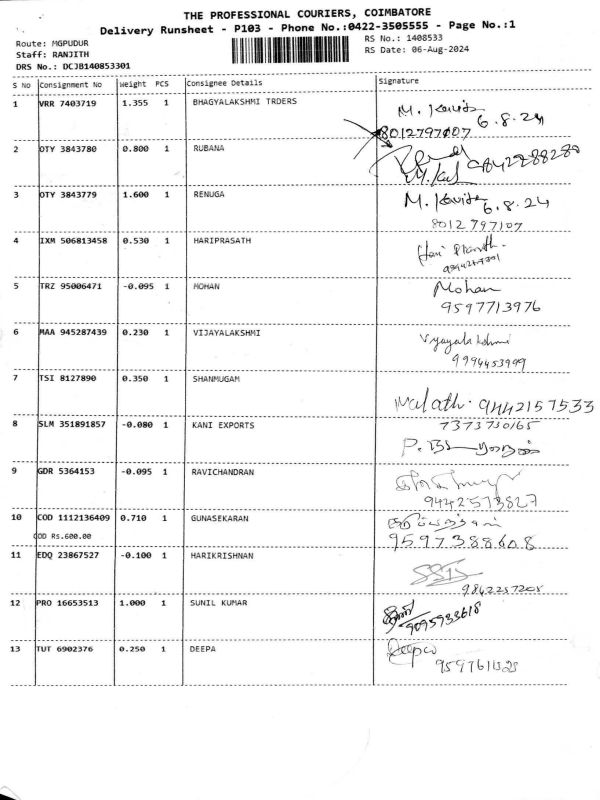 THE PROFESSIONAL COURIERS, COIMBATORE
Delivery Runsheet - P103 - Phone No.:0422-3505555 - Page No.:1
Route: MGPUDUR
RS No.: 1408533
Staff: RANJITH
RS Date: 06-Aug-2024
DRS No.: DCJB140853301
S No Consignment No Weight PCS Consignee Details Signature
1 VRR 7403719 1.355 1 BHAGYALAKSHMI TRDERS M. Kavitha 6.8.24
8012797107
2 OTY 3843780 0.800 1 RUBANA 9842288280
3 OTY 3843779 1.600 1 RENUGA M. Kavitha 6.8.24
8012797107
4 IXM 506813458 0.530 1 HARIPRASATH Hari Prasath.
5 TRZ 95006471 -0.095 1 MOHAN Mohan
9597713976
6 MAA 945287439 0.230 1 VIJAYALAKSHMI Vijayalakshmi
9994453999
7 TSI 8127890 0.350 1 SHANMUGAM Malathi. 9442157533
8 SLM 351891857 -0.080 1 KANI EXPORTS 7373730165
9 GDR 5364153 -0.095 1 RAVICHANDRAN
9442573827
10 COD 1112136409 0.710 1 GUNASEKARAN
COD Rs.600.00 9597388608
11 EDQ 23867527 -0.100 1 HARIKRISHNAN
9842257205
12 PRO 16653513 1.000 1 SUNIL KUMAR
9095933618
13 TUT 6902376 0.250 1 DEEPA Deepa